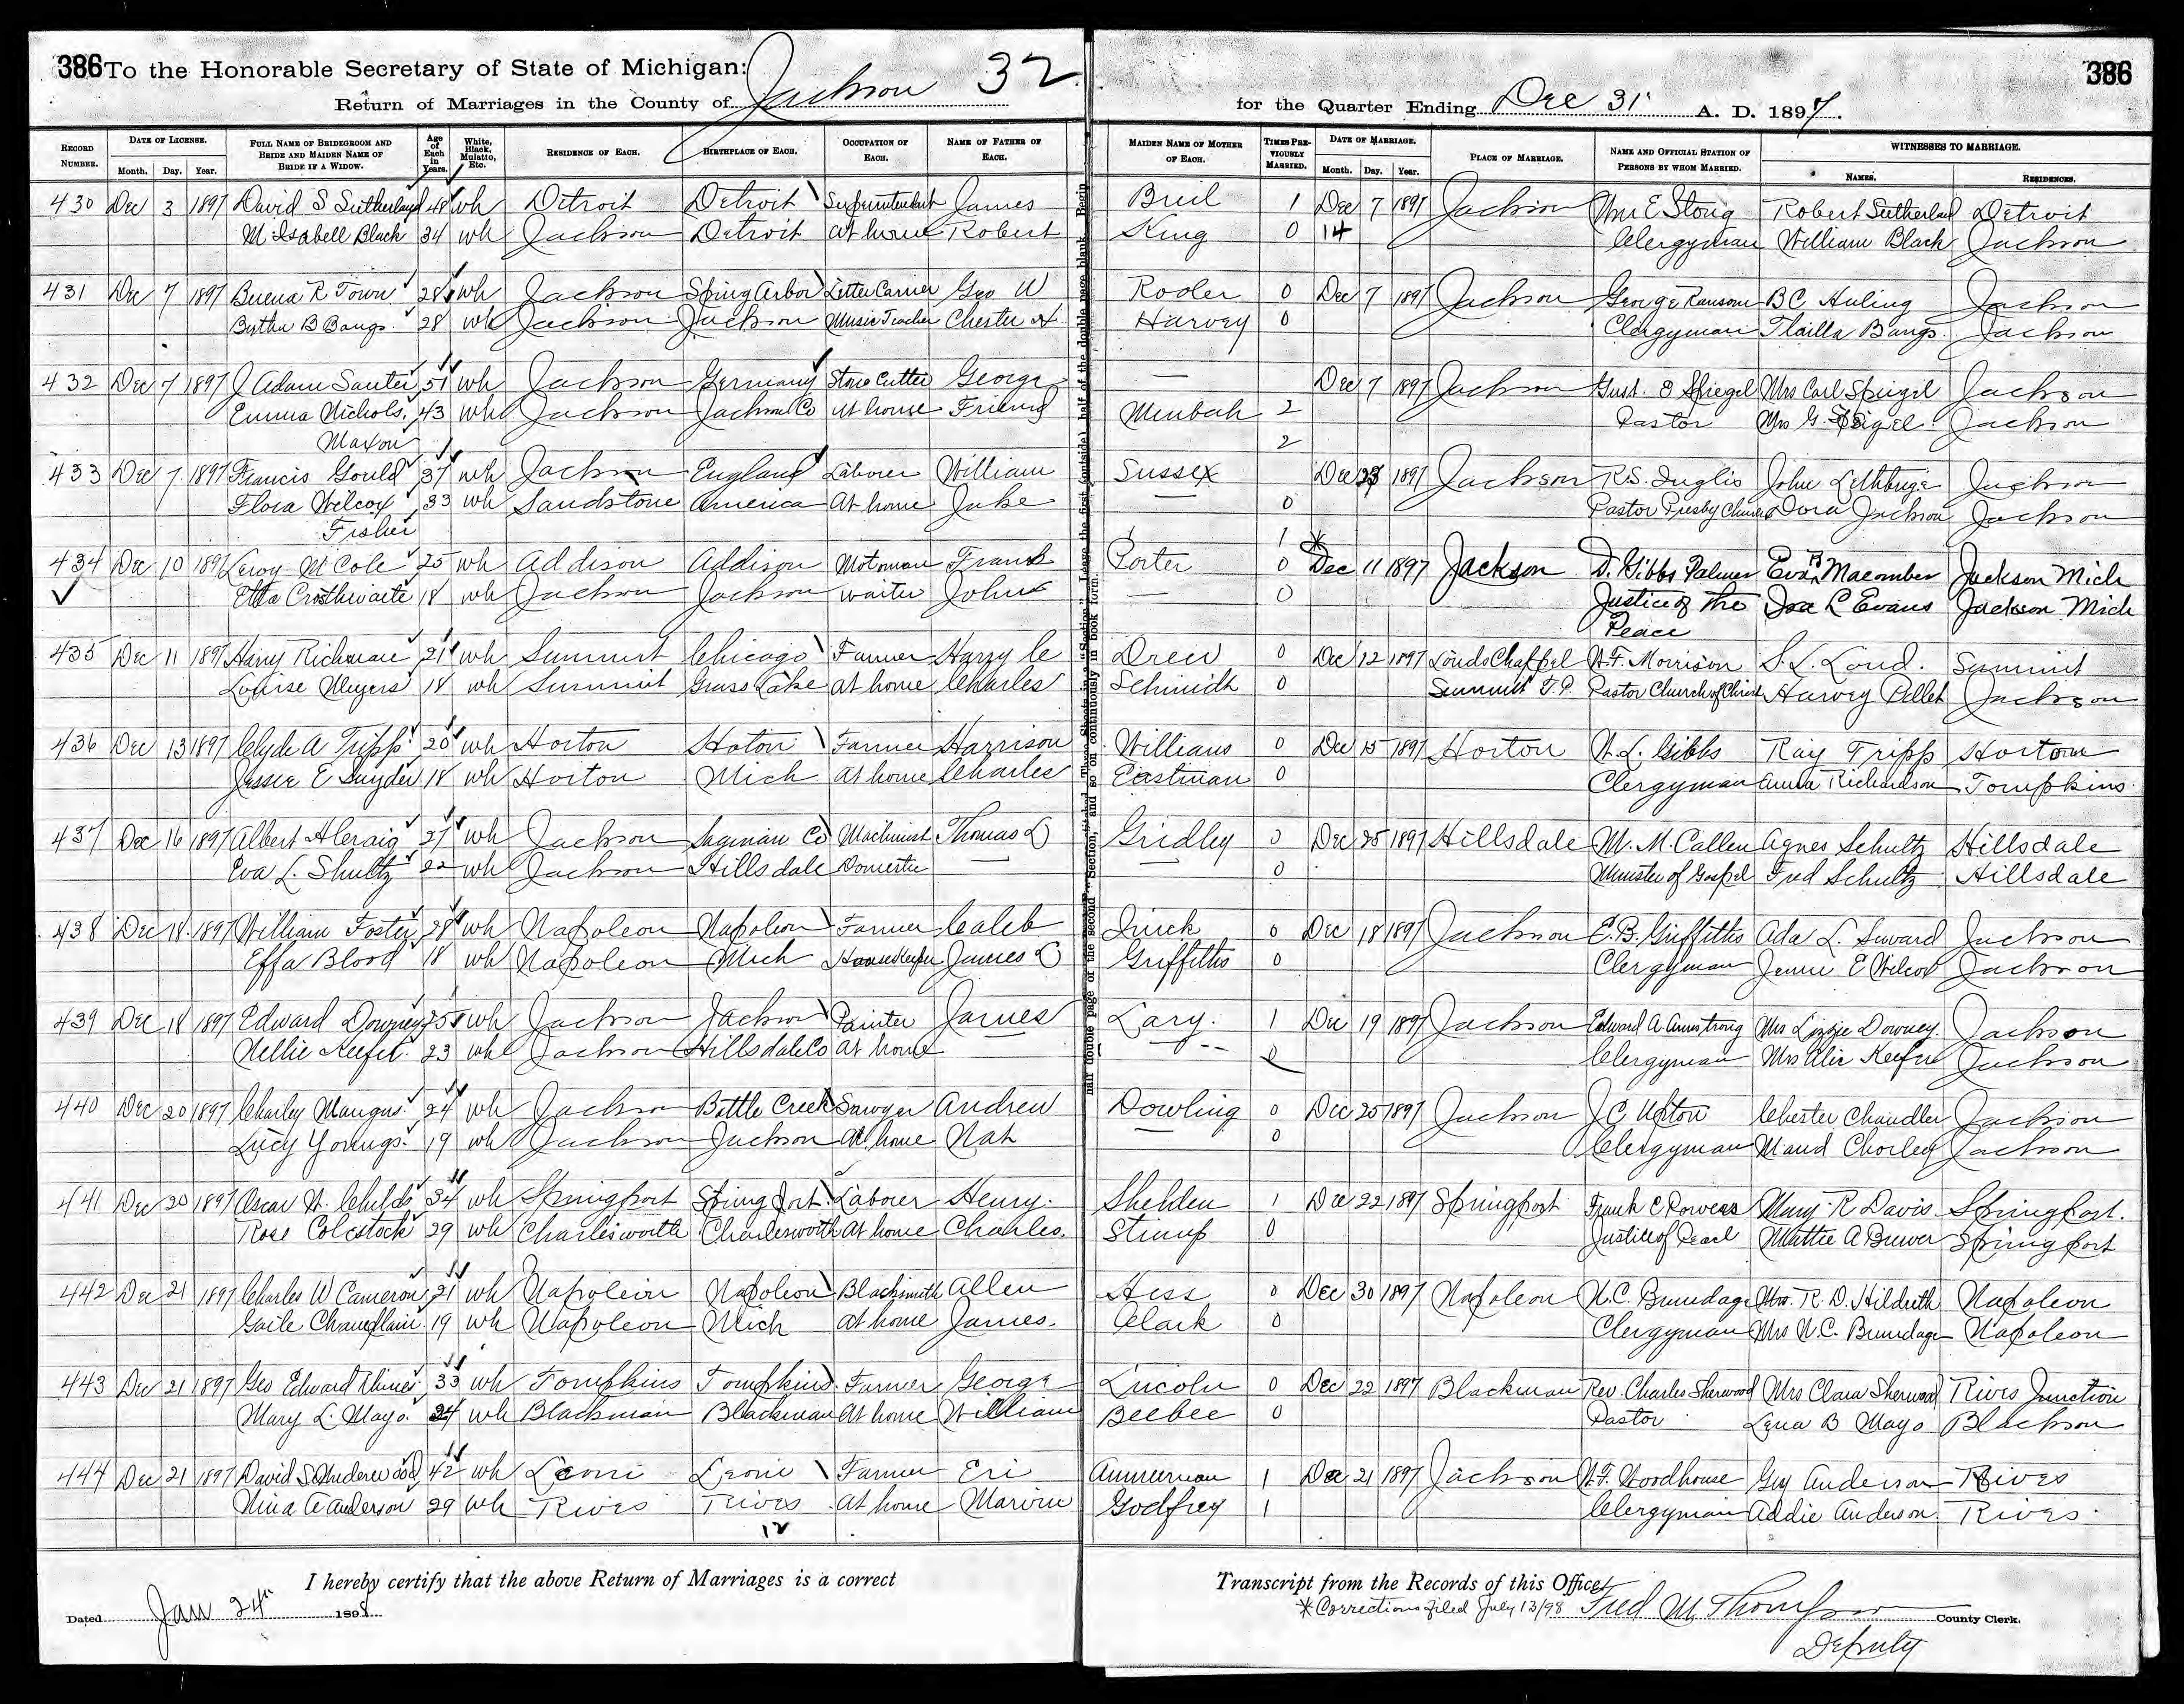 386 To the Honorable Secretary of State of Michigan:
Return of Marriages in the County of Jackson 32
for the Quarter Ending Dec 31 A. D. 1897.
386
RECORD NUMBER. DATE OF LICENSE. Month. Day. Year. FULL NAME OF BRIDEGROOM AND BRIDE AND MAIDEN NAME OF BRIDE IF A WIDOW. Age of Each in Years. White, Black, Mulatto, Etc. RESIDENCE OF EACH. BIRTHPLACE OF EACH. OCCUPATION OF EACH. NAME OF FATHER OF EACH. MAIDEN NAME OF MOTHER OF EACH. TIMES PREVIOUSLY MARRIED. DATE OF MARRIAGE. Month. Day. Year. PLACE OF MARRIAGE. NAME AND OFFICIAL STATION OF PERSONS BY WHOM MARRIED. WITNESSES TO MARRIAGE. NAMES. RESIDENCES.
430 Dec 3 1897 David S Sutherland 48 wh Detroit Detroit Superintendent James Breil 1 Dec 7 1897 Jackson Wm E Stong Robert Sutherland Detroit
M Isabell Black 34 wh Jackson Detroit at home Robert King 0 14 Clergyman William Black Jackson
431 Dec 7 1897 Buena R Town 28 wh Jackson Spring Arbor Letter Carrier Geo W Rooler 0 Dec 7 1897 Jackson George Ransom B C Huling Jackson
Bertha B Bangs 28 wh Jackson Jackson Music Teacher Chester H Harvey 0 Clergyman Bangs Jackson
432 Dec 7 1897 J Adam Sauter 51 wh Jackson Germany Stone Cutter George — Dec 7 1897 Jackson Gust. E Spiegel Mrs Carl Spiegel Jackson
Emma Nichols, 43 wh Jackson Jackson Co at home Friend 2 Pastor Mrs G. Spigel Jackson
Maxon 2
433 Dec 7 1897 Francis Gould 37 wh Jackson England Laborer William Sussex Dec 23 1897 Jackson R.S. Inglis John Lethbrige Jackson
Flora Wilcox 33 wh Sandstone America At home Jake — 0 Pastor Presby Church Dora Jackson Jackson
Fisher 1
434 Dec 10 1897 Leroy M Cole 25 wh Addison Addison Motorman Frank Porter 0 * Dec 11 1897 Jackson D. Gibbs Palmer Eva B Macomber Jackson Mich
Etta Crosthwaite 18 wh Jackson Jackson waiter John — 0 Justice of the Ira L Evans Jackson Mich
Peace
435 Dec 11 1897 Harry Richmire 21 wh Summit Chicago Farmer Harry C Drew 0 Dec 12 1897 Louds Chappel W.F. Morrison S. L. Loud. Summit
Louise Meyers 18 wh Summit Grass Lake at home Charles Schmidt 0 Summit T.P. Pastor Church of Christ Harvey Pellet Jackson
436 Dec 13 1897 Clyde A Tripp 20 wh Horton Hoton Farmer Harrison Williams 0 Dec 15 1897 Horton W. L. Gibbs Ray Tripp Horton
Jessie E Snyder 18 wh Horton Mich At home Charles Eastman 0 Clergyman Anna Richardson Tompkins
437 Dec 16 1897 Albert H Craig 27 wh Jackson Saginaw Co Machinist Thomas D Gridley 0 Dec 25 1897 Hillsdale M. M. Callen Agnes Schultz Hillsdale
Eva L. Shultz 22 wh Jackson Hillsdale Domestic — — 0 Minister of Gospel Fred Schultz Hillsdale
438 Dec 18 1897 William Foster 28 wh Napoleon Napoleon Farmer Caleb Quick 0 Dec 18 1897 Jackson E. B. Griffiths Ada L. Seward Jackson
Effa Blood 18 wh Napoleon Mich Housekeeper James O Griffiths 0 Clergyman Jennie E Wilcox Jackson
439 Dec 18 1897 Edward Downey 25 wh Jackson Jackson Painter James Lary. 1 Dec 19 1897 Jackson Edward A. Armstrong Mrs Lizzie Downey Jackson
Nellie Keefer 23 wh Jackson Hillsdale Co at home — — 0 Clergyman Mrs Alir Keefer Jackson
440 Dec 20 1897 Charley Mangus 24 wh Jackson Battle Creek Sawyer Andrew Dowling 0 Dec 25 1897 Jackson J C Upton Chester Chandler Jackson
Lucy Youngs 19 wh Jackson Jackson At home Nat — 0 Clergyman Maud Chorley Jackson
441 Dec 20 1897 Oscar W. Childs 34 wh Springport Springport Laborer Henry. Shelden 1 Dec 22 1897 Springport Frank C Rowers Mary R Davis Springport.
Rose Colestock 29 wh Charlesworth Charlesworth At home Charles. Stimp 0 Justice of Peace Mattie A Brewer Springport
442 Dec 21 1897 Charles W Cameron 21 wh Napoleon Napoleon Blacksmith Allen Hess 0 Dec 30 1897 Napoleon N.C. Brundage Mrs. R. D. Hildreth Napoleon
Gaile Champlain 19 wh Napoleon Mich at home James. Clark 0 Clergyman Mrs N.C. Brundage Napoleon
443 Dec 21 1897 Geo Edward Rhines 33 wh Tompkins Tompkins Farmer George Lincoln 0 Dec 22 1897 Blackman Rev. Charles Sherwood Mrs Clara Sherwood Rives Junction
Mary L. Mayo 24 wh Blackman Blackman At home William Beebee 0 Pastor Lena B Mayo Blackson
444 Dec 21 1897 David S Underwood 42 wh Leoni Leoni Farmer Eri Ammerman 1 Dec 21 1897 Jackson W.F. Woodhouse Guy Anderson Rives
Nina A Anderson 29 wh Rives Rives At home Marvin Godfrey 1 Clergyman Addie Anderson Rives
12
I hereby certify that the above Return of Marriages is a correct Transcript from the Records of this Office.
* Corrections filed July 13/98
Dated Jan 24th 1898 Fred M Thompson County Clerk.
Deputy